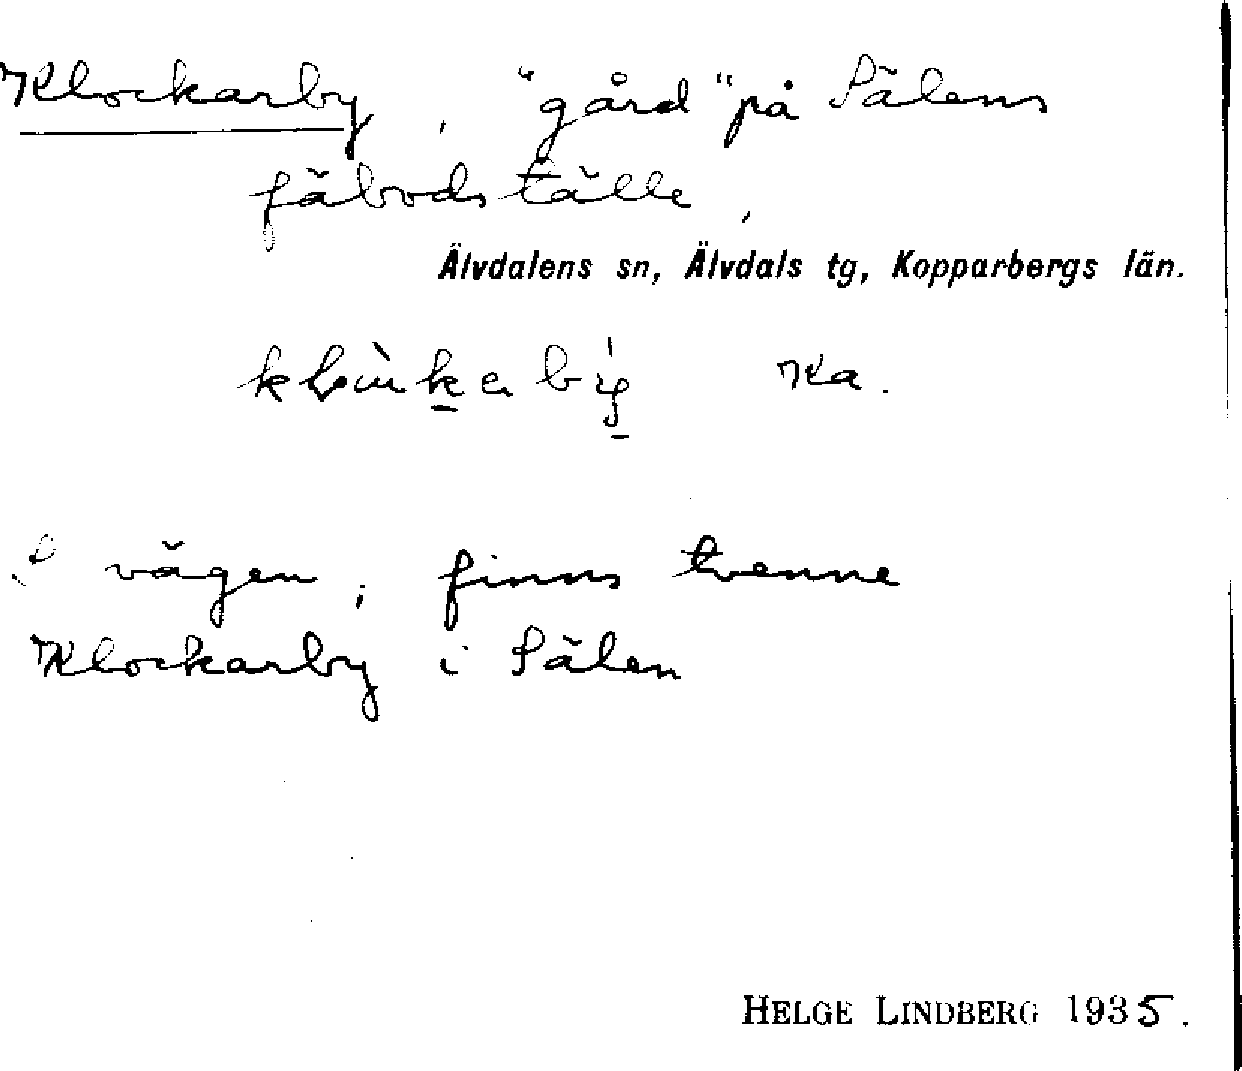 Klockarby, "gård" på Sälens
fäbodställe,
Älvdalens sn, Älvdals tg, Kopparbergs län.
Ka.
vägen, finns tvenne
Klockarby i Sälen
HELGE LINDBERG 1935.